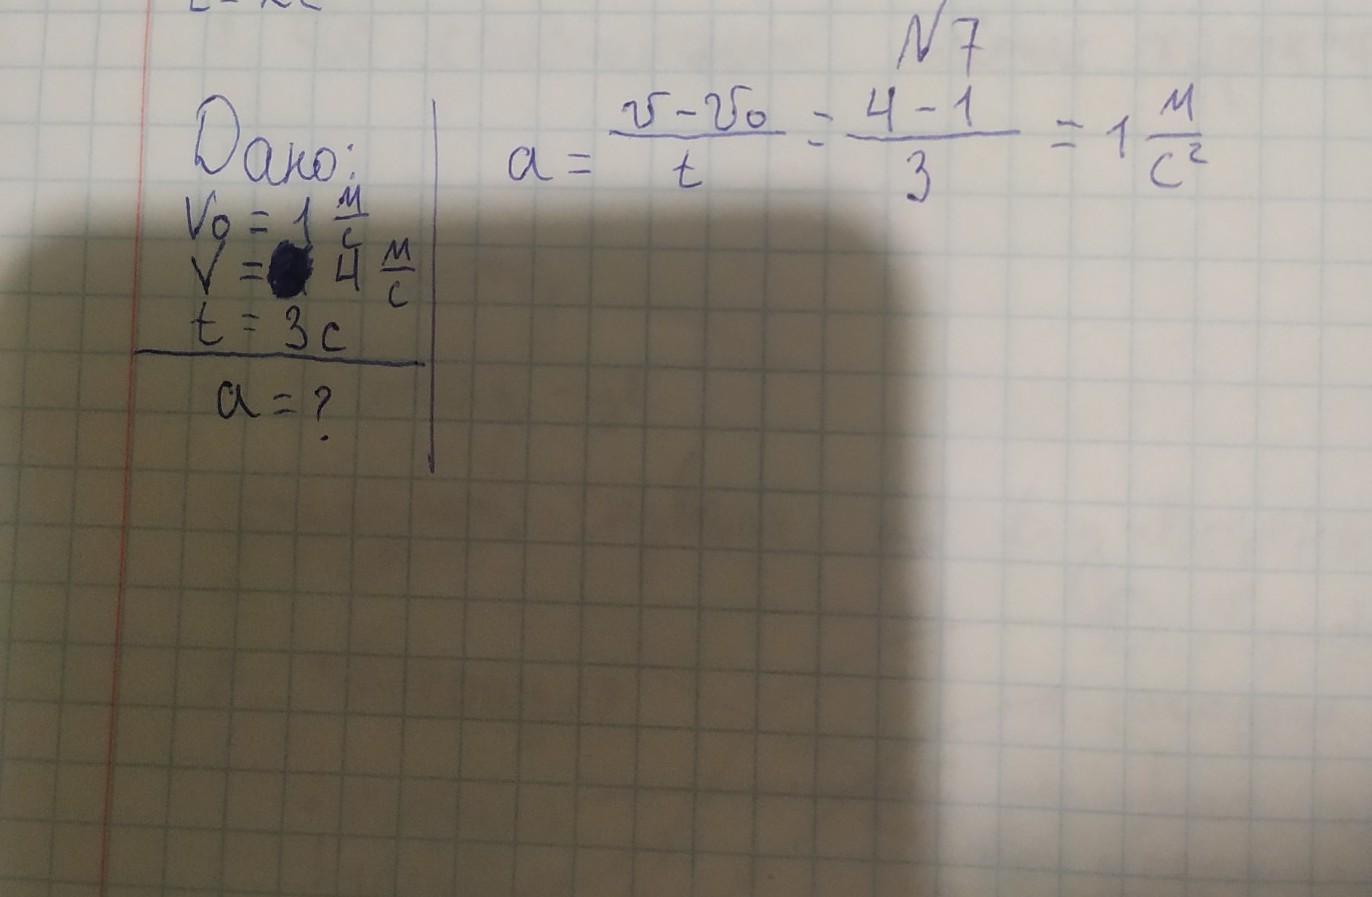 N7
Дано:
V₀ = 1 м/с
V = 4 м/с
t = 3 с
a = ?
a = (v - v₀)/t = (4 - 1)/3 = 1 м/с²